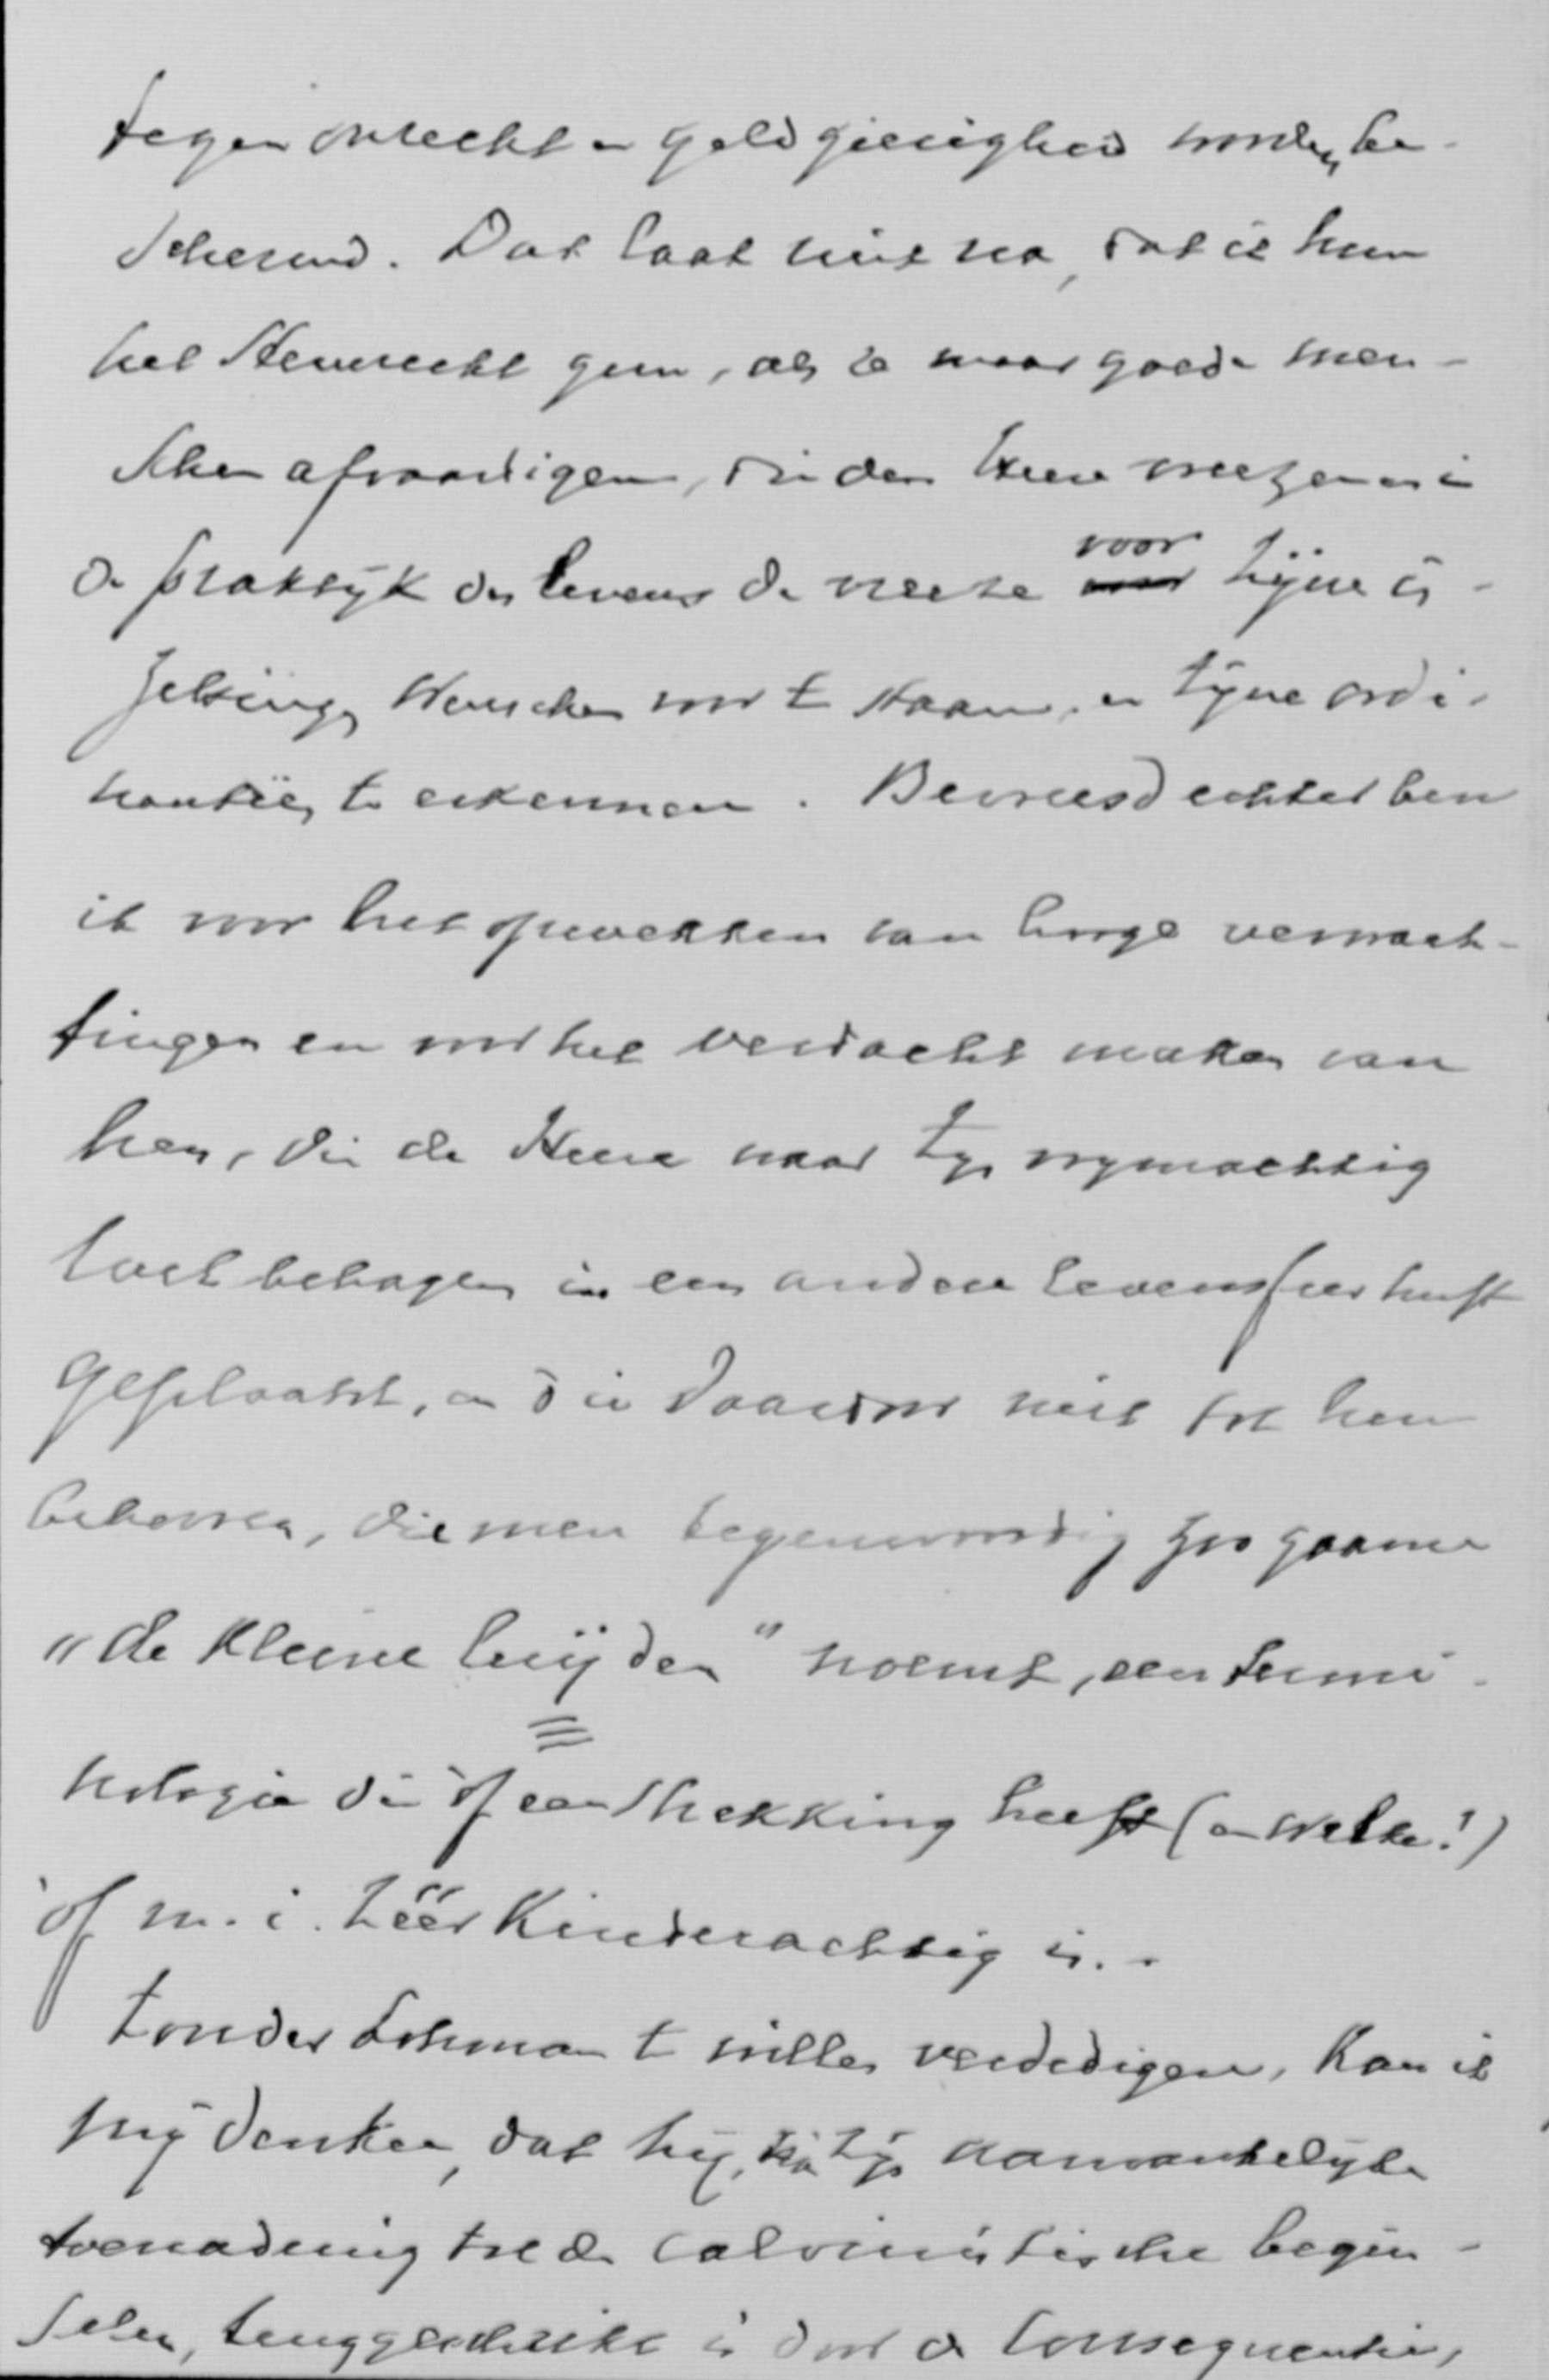 tegen onrecht en geldgierigheid worden be-
schermd. Dat laat niet na, dat ik hun
het stemrecht gun, als ze maar goede men-
schen afvaardigen, die den Heere vreezen en in
de praktijk des levens de vreeze voor Zijne in-
zettingen wenschen voor te staan, en Zijne ordi-
nantiën te erkennen. Bevreesd echter ben
ik voor het opwekken van hooge verwach-
tingen en voor het verdacht maken van
hen, die de Heere naar Zijn vrymachtig
welbehagen in een andere levenssfeer heeft
geplaatst, en die daardoor niet tot hen
behooren, die men tegenwoordig zoo gaarne
"de kleine luijden" noemt, een termi-
nologie die òf een strekking heeft (en welke!)
òf m.i. zéér kinderachtig is. -
Zonder Lohman te willen verdedigen, kan ik
mij denken, dat hij, na zijn aanvankelijke
toenadering tot de calvinistische begin-
selen, teruggeschrikt is door de consequentie,